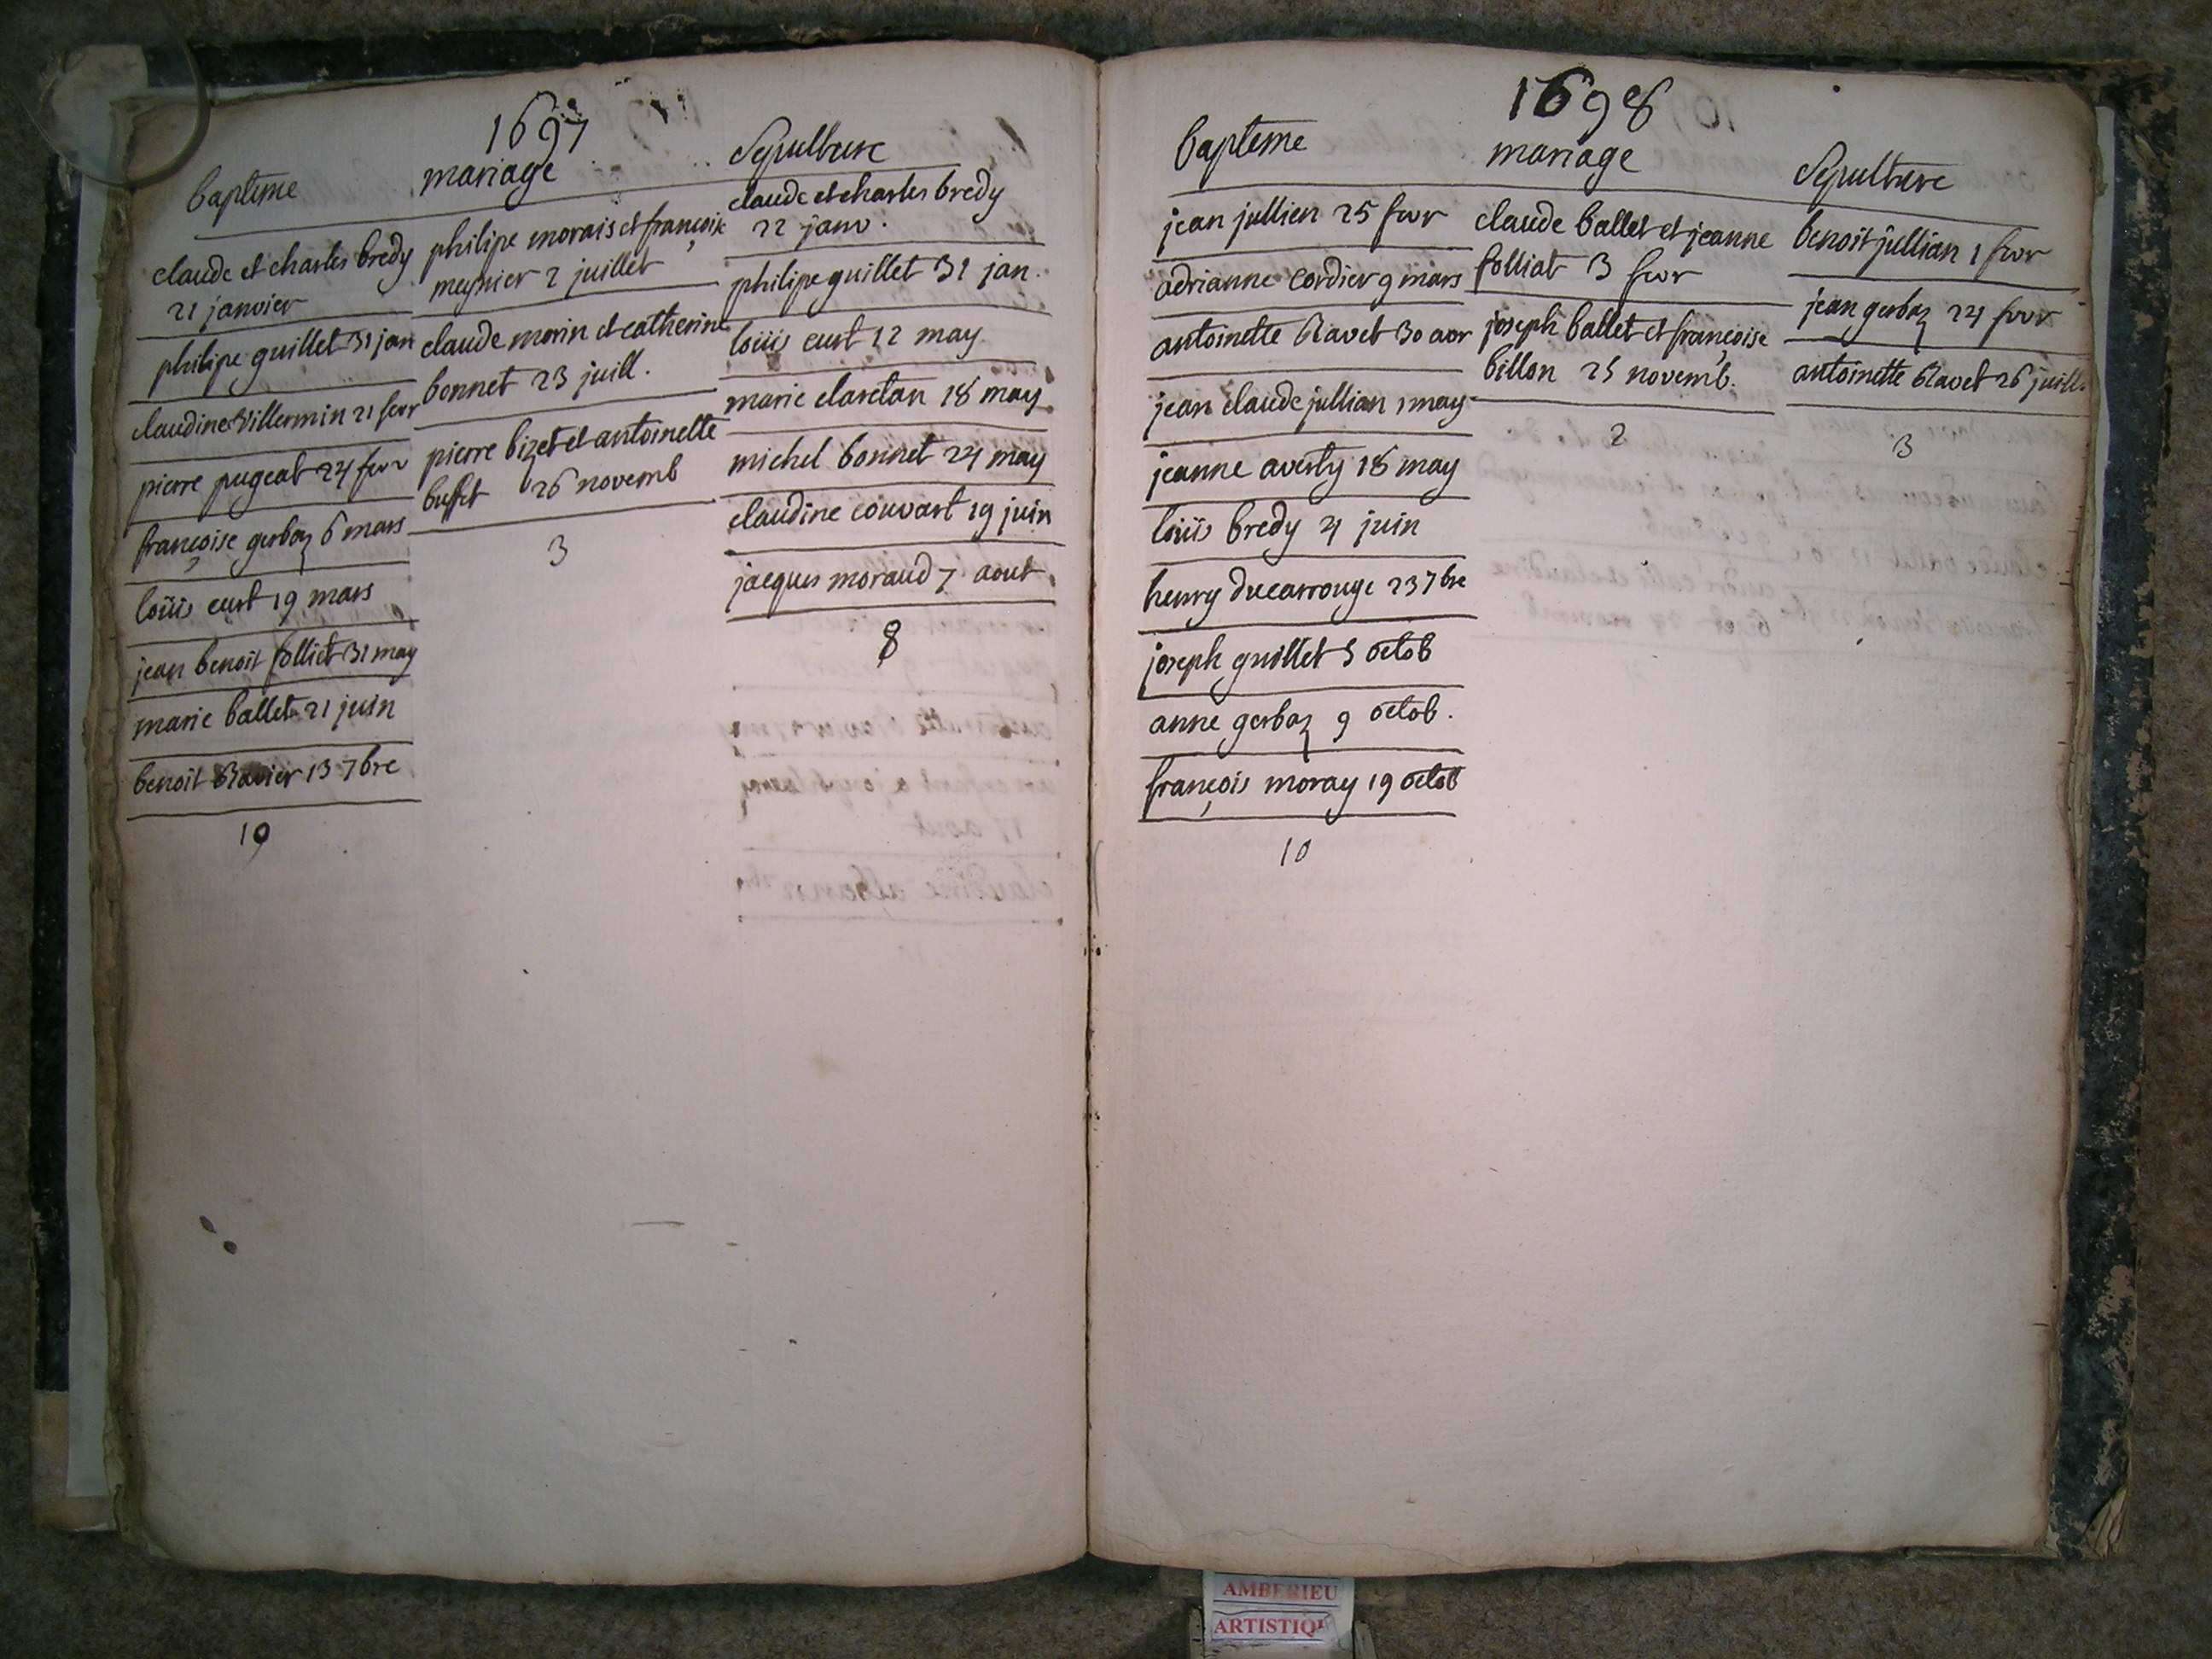 1697
bapteme
claude et charles bredy
21 janvier
philipe guillet 31 jan
claudine Villermin 21 fevr
pierre pugeat 24 fevr
françoise gerbaz 6 mars
loüis curt 19 mars
jean benoit folliet 31 may
marie ballet 21 juin
benoit Ravier 13 7bre
10
mariage
philipe morais et françoise
meynier 2 juillet
claude morin et catherine
bonnet 23 juill.
pierre bizet et antoinette
buffet 26 novemb
3
Sepulture
claude et charles bredy
22 janv.
philipe guillet 31 jan.
loüis curt 12 may
marie claretan 18 may
michel bonnet 24 may
claudine couvart 19 juin
jacques moraud 7 aout
8
1698
bapteme
jean jullien 25 fevr
adrianne Cordier 9 mars
antoinette Ravet 30 avr
jean claude jullian 1 may
jeanne averty 18 may
loüis bredy 4 juin
henry ducarrouge 23 7bre
joseph guillet 5 octob
anne gerbaz 9 octob.
françois moray 19 octob
10
mariage
claude ballet et jeanne
folliat 3 fevr
joseph ballet et françoise
billon 25 novemb.
2
Sepulture
benoit jullian 1 fevr
jean gerbaz 24 fevr
antoinette Ravet 26 juill.
3
AMBERIEU
ARTISTIQU